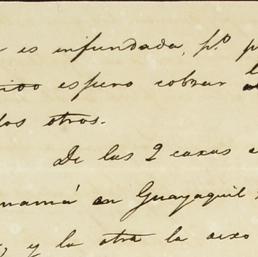 es infundada, p.º p
espero cobrar
los otros.
De las 2 caxas
namá en Guayaquil
, y la otra la dexo